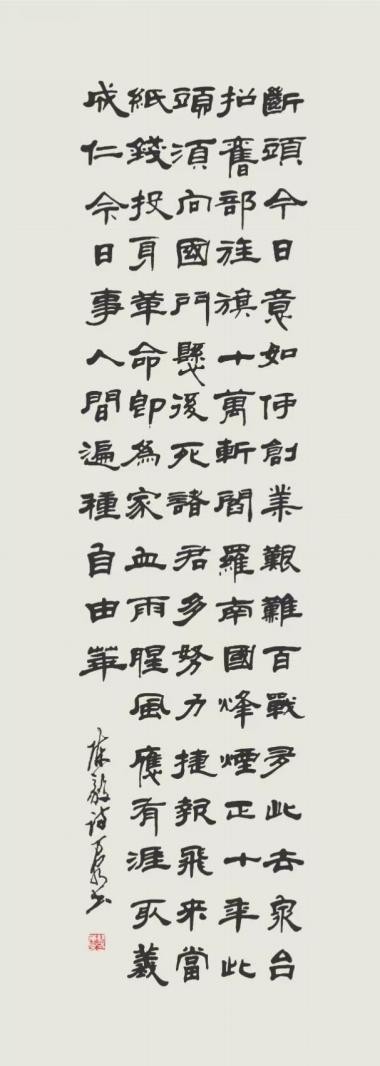 斷頭今日意如何創業艱難百戰多此去泉台
招舊部旌旗十萬斬閻羅南國烽煙正十年此
頭須向國門懸後死諸君多努力捷報飛來當
紙錢投身革命即為家血雨腥風應有涯取義
成仁今日事人間遍種自由華
陳毅詩